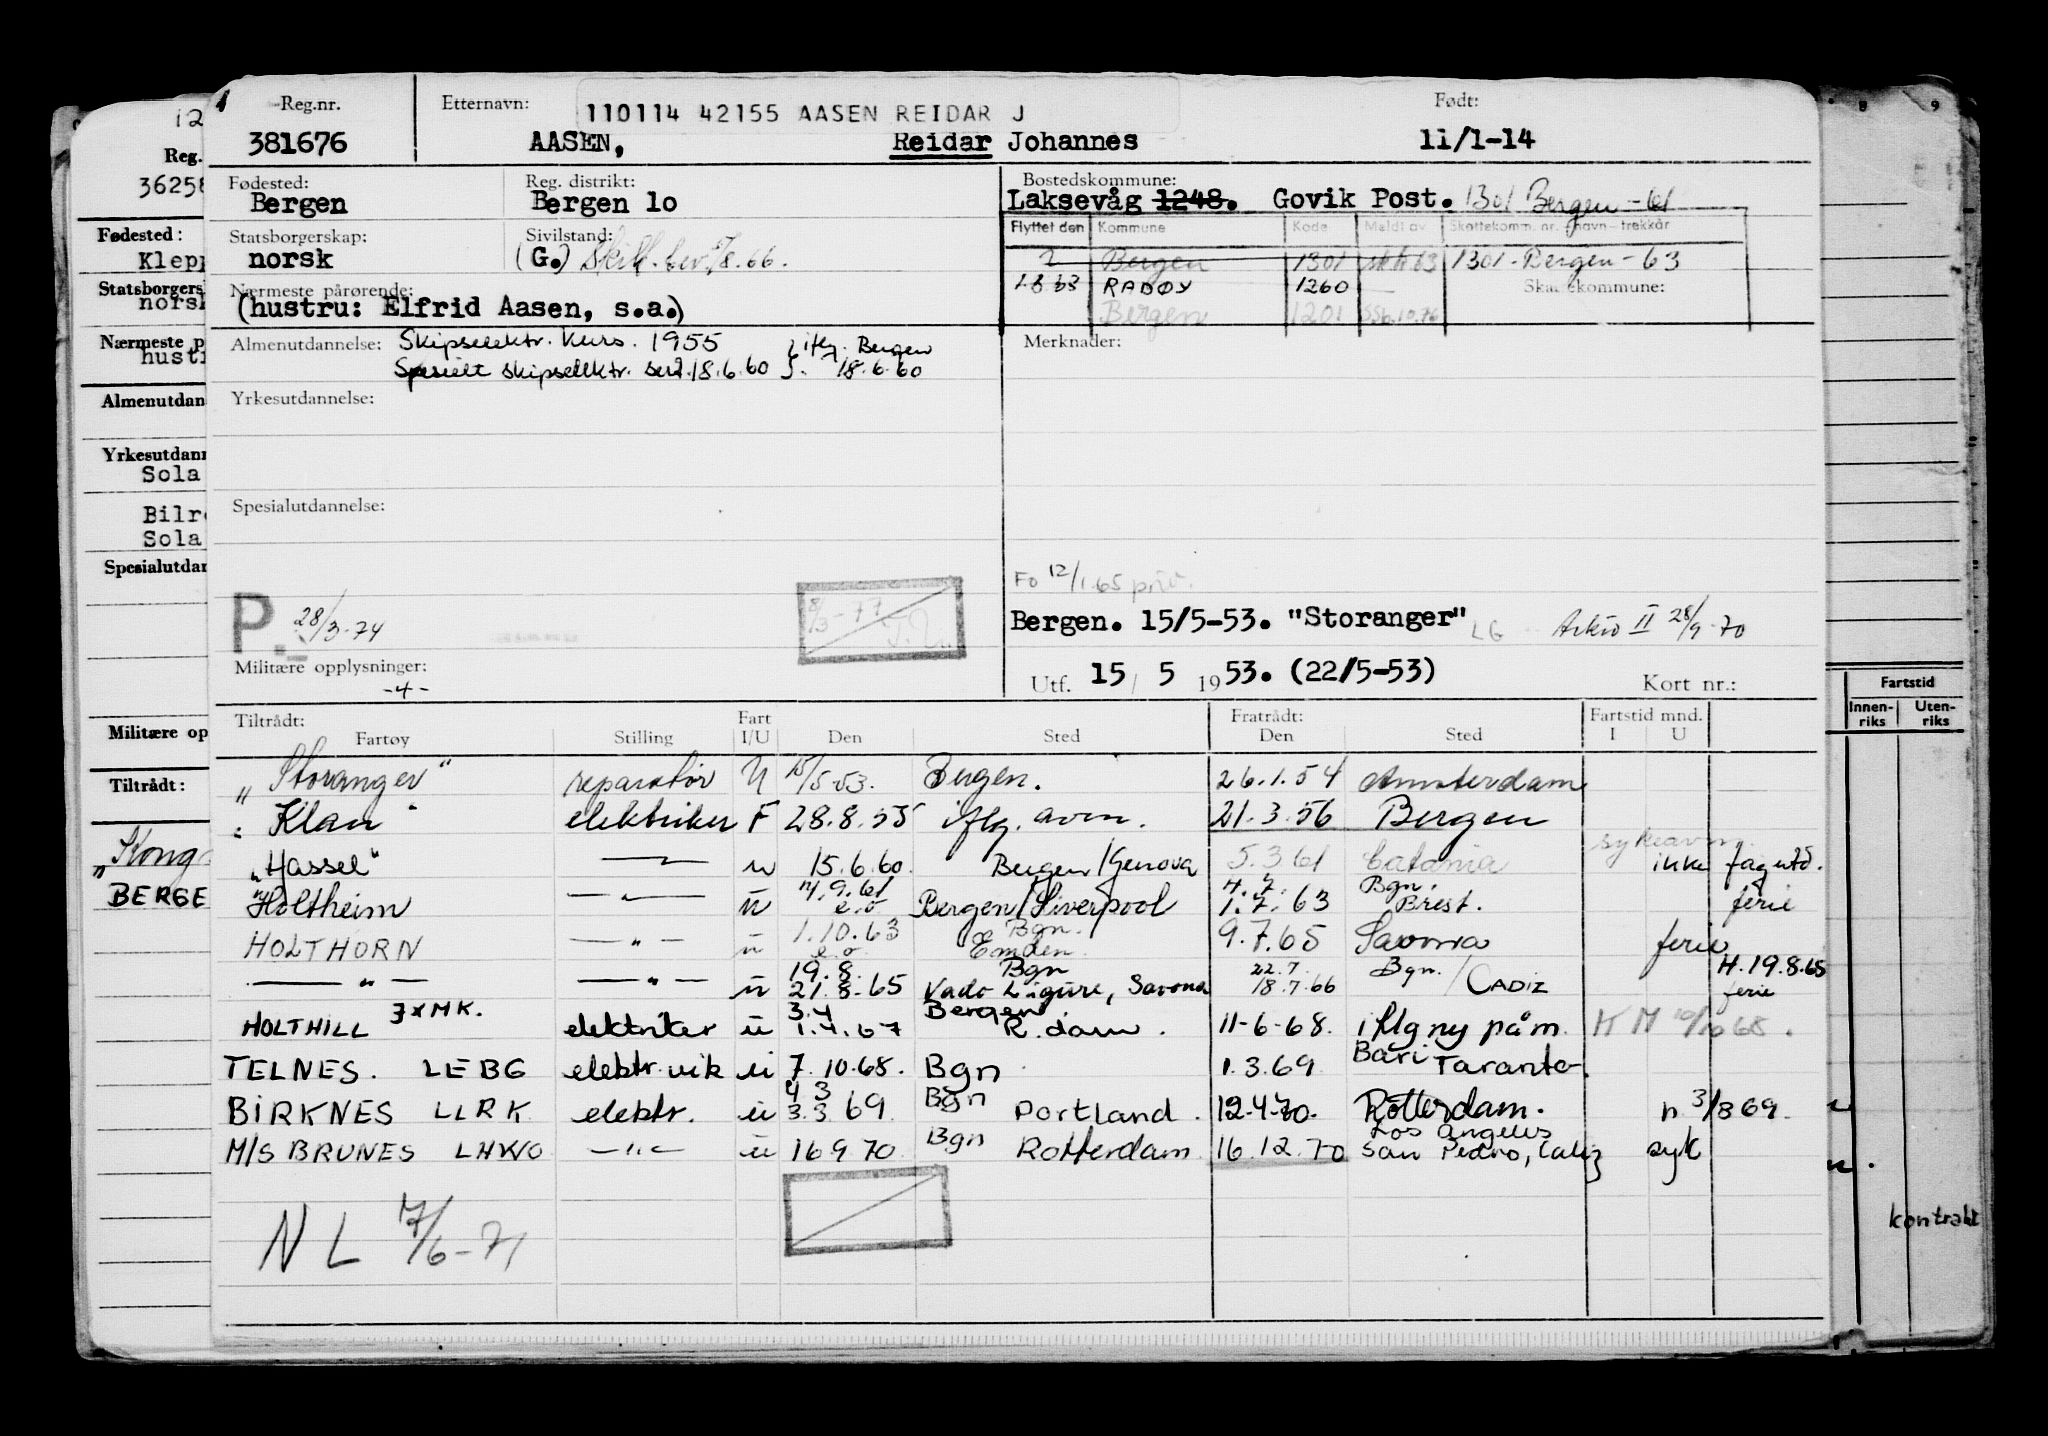 Reg.nr. Etternavn: 110114 42155 AASEN REIDAR J Født:
381676 AASEN, Reidar Johannes 11/1-14
Fødested: Reg. distrikt: Bostedskommune:
Bergen Bergen lo Laksevåg 1248. Govik Post. 1301 Bergen - 61
Statsborgerskap: Sivilstand: Flyttet den Kommune Kode Meldt av Skattekomm. nr. navn-trekkår
norsk (G.) Skilt. bev. /8.66. 2 Bergen 1301 63 1301 - Bergen - 63
Nærmeste pårørende: 1.8.63 RADØY 1260 Skattekommune:
(hustru: Elfrid Aasen, s.a.) Bergen 1201 10.76
Almenutdannelse: Skipselektr. kurs. 1955 iflg. Bergen Merknader:
Spesielt skipselektr. 18.6.60 18.6.60
Yrkesutdannelse:
Spesialutdannelse:
Fo 12/1.65 priv.
P. 28/3-74 8/3-77 Bergen. 15/5-53. "Storanger" LG Arkiv II 28/9-70
Militære opplysninger: Utf. 15/5 1953. (22/5-53) Kort nr.:
-4-
Tiltrådt: Fart Fratrådt: Fartstid mnd.
Fartøy Stilling I/U Den Sted Den Sted I U
"Storanger" reparatør U 15/5-53. Bergen. 26.1.54 Amsterdam
"Klan" elektriker F 28.8.55 iflg. avm. 21.3.56 Bergen
"Hassel" —"— u 15.6.60. Bergen/Genova 5.3.61 Catania sykeavm. ikke fagutd.
"Holtheim —"— u 14.9.61 e.o Bergen/Liverpool 4.7. 1.7.63 Bgn. Brest. ferie
HOLTHORN —"— u 1.10.63 e.o. Bgn. Emden. 9.7.65 Savona ferie
—"— —"— u 19.8. 21.8.65 Bgn Vado Ligure, Savona 22.7 18.7.66 Bgn./CADIZ H. 19.8.65 ferie
HOLTHILL 3xMK. elektriker u 3.4 1.4.67 Bergen R.dam. 11-6-68. iflg ny påm. 68.
TELNES. LEBG elektr. vik u 7.10.68. Bgn 1.3.69 Bari Taranto.
BIRKNES LLRK elektr. u 4 3 3.3.69. Bgn Portland. 12-4-70. Rotterdam. n 3/3 69.
M/S BRUNES LHWO —"— u 16 9 70 Bgn Rotterdam. 16.12.70 Los Angeles San Pedro, Calif syk
NL 17/6-71
12
Reg.
36258
Fødested:
Klepp
Statsborgers
norsk
Nærmeste p
hustr
Almenutdan
Yrkesutdann
Sola
Bilre
Sola
Spesialutdan
Militære op
Tiltrådt:
"Kong
BERGE
8 9
Fartstid
Innen- Uten-
riks riks
kontrakt